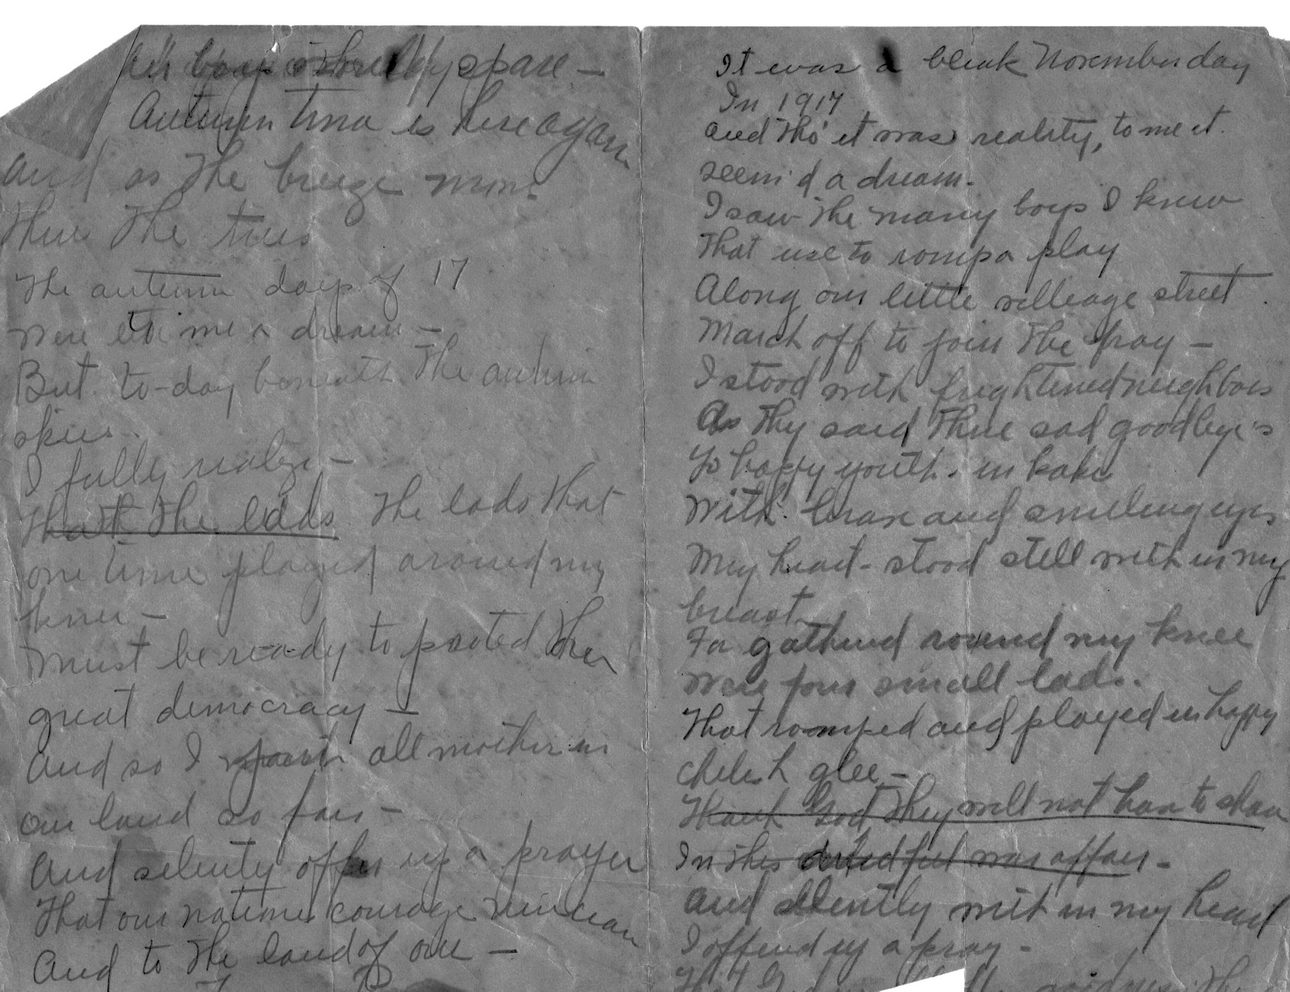 boys spare —
Autumn time is here again
and as the breeze
thru the trees
The autumn days of 17
Were to me a dream —
But to-day beneath the autumn
skies
I fully realize —
That the lads The lads that
one time played around my
knee —
Must be ready to
great democracy —
And so I all mother in
our land so fair —
And silently offer up a prayer
That our nations courage
And to the land of our —
It was a bleak November day
In 1917
and tho' it was reality, to me it
seem'd a dream.
I saw the many boys I knew
That use to romp a play
Along our little village street
March off to join the fray —
I stood with frightened neighbors
As they said their sad goodbye's
To happy youth in kaki
With brave and smileing eyes
My heart stood still with in my
breast
For gathered around my knee
Were four small lads.
That romped and played in happy
childish glee —
Thank God They will not have to share
In this war affair —
And silently with in my heart
I offered up a pray —